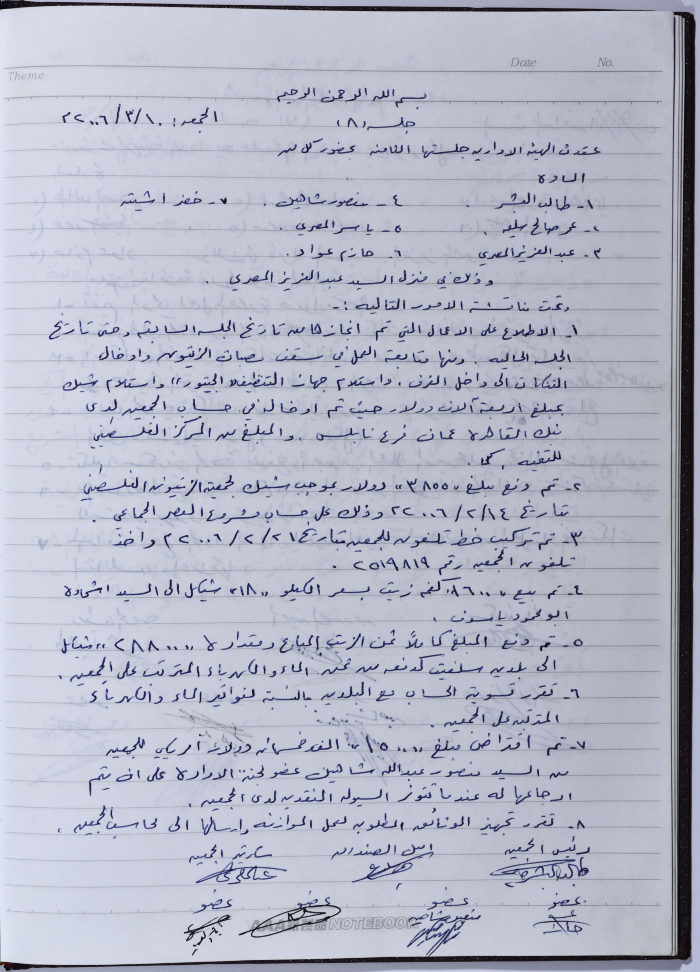 Theme Date No.
بسم الله الرحمن الرحيم
جلسة (٨) الجمعة: ١٠/٣/٢٠٠٦م
عقدت الهيئة الادارية جلستها الثامنة بحضور كل من
السادة
١- طالب البشر . ٤- منصور شاهين . ٧- خضر اشتية
٢- عمر صالح سليمه . ٥- ياسر المصري .
٣- عبد العزيز المصري ٦- حازم عواد .
وذلك في منزل السيد عبد العزيز المصري .
وتمت مناقشة الامور التالية :-
١- الاطلاع على الاعمال التي تم انجازها من تاريخ الجلسة السابقة وحتى تاريخ
الجلسة الحالية . ومنها متابعة العمل في سقف نصبات الزيتون وادخال
التنكات الى داخل الغرف . واستلام جهاز التنظيف "الجيتور" واستلام شيك
بمبلغ اربعة آلاف دولار حيث تم ادخاله في حساب الجمعية لدى
بنك القاهرة عمان فرع نابلس . والمبلغ من المركز الفلسطيني
للتقنية .
٢- تم دفع مبلغ "٣٨٥٥" دولار بموجب شيك لجمعية الزيتون الفلسطيني
بتاريخ ١٤/٢/٢٠٠٦ وذلك على حساب مشروع العصر الجماعي .
٣- تم تركيب خط تلفون للجمعية بتاريخ ٢١/٢/٢٠٠٦ م واخذ
تلفون الجمعية رقم ٢٥١٩٨١٩ .
٤- تم بيع كغم زيت بسعر الكيلو "١٨" شيكل الى السيد
ابو محمود ياسوف .
٥- تم دفع المبلغ كاملاً ثمن الزيت المباع ومقداره شيكل
الى بلدية سلفيت كدفعه من ثمن الماء والكهرباء المترتب على الجمعية .
٦- تقرر تسوية الحساب مع البلدية بالنسبة لفواتير الماء والكهرباء
المترتبة على الجمعية .
٧- تم اقتراض مبلغ "١٥٠٠" الف وخمسمائة دولار امريكي للجمعية
من السيد منصور عبدالله شاهين عضو لجنة الادارة على ان يتم
ارجاعها له عندما تتوفر السيولة النقدية لدى الجمعية .
٨- تقرر تجهيز الوثائق المطلوبة لعمل الموازنة وارسالها الى محاسب الجمعية .
رئيس الجمعية امين الصندوق سكرتير الجمعية
عضو عضو عضو عضو
NOTEBOOK